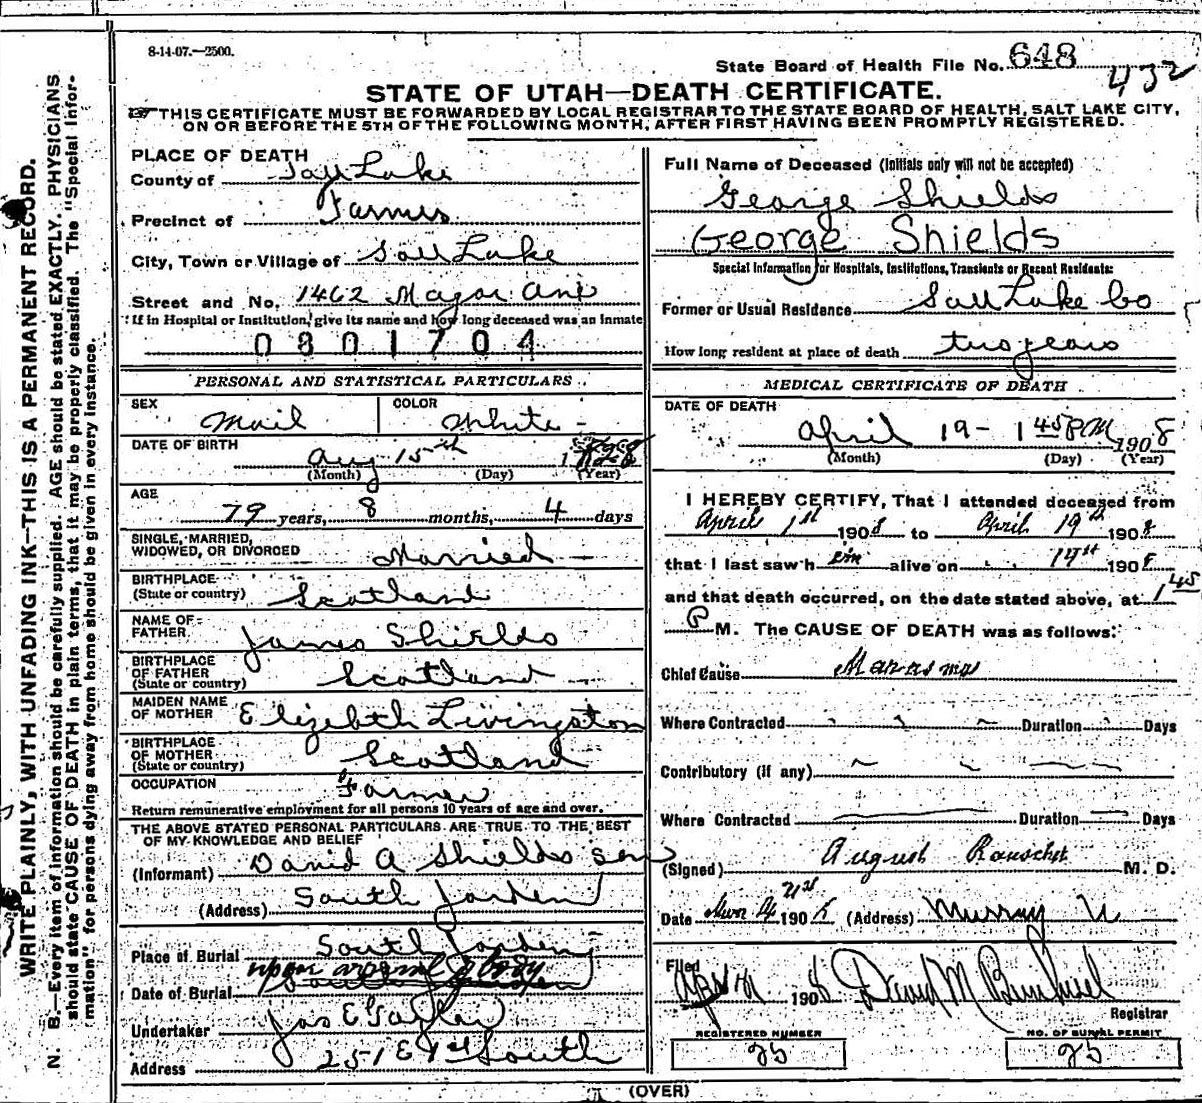 8-14-07.—2500.
State Board of Health File No. 648
432
STATE OF UTAH—DEATH CERTIFICATE.
THIS CERTIFICATE MUST BE FORWARDED BY LOCAL REGISTRAR TO THE STATE BOARD OF HEALTH, SALT LAKE CITY,
ON OR BEFORE THE 5TH OF THE FOLLOWING MONTH, AFTER FIRST HAVING BEEN PROMPTLY REGISTERED.
WRITE PLAINLY, WITH UNFADING INK—THIS IS A PERMANENT RECORD.
N. B.—Every item of information should be carefully supplied. AGE should be stated EXACTLY. PHYSICIANS
should state CAUSE OF DEATH in plain terms, that it may be properly classified. The "Special Infor-
mation" for persons dying away from home should be given in every instance.
PLACE OF DEATH
County of Salt Lake
Precinct of Farmers
City, Town or Village of Salt Lake
Street and No. 1462 Major Ave
If in Hospital or Institution, give its name and how long deceased was an inmate
0801704
PERSONAL AND STATISTICAL PARTICULARS
SEX Mail COLOR White
DATE OF BIRTH Aug 15th
(Month) (Day) (Year)
AGE
79 years, 8 months, 4 days
SINGLE, MARRIED,
WIDOWED, OR DIVORCED Married
BIRTHPLACE
(State or country) Scotland
NAME OF
FATHER James Shields
BIRTHPLACE
OF FATHER
(State or country) Scotland
MAIDEN NAME
OF MOTHER Elizebth Livingston
BIRTHPLACE
OF MOTHER
(State or country) Scotland
OCCUPATION Farmer
Return remunerative employment for all persons 10 years of age and over.
THE ABOVE STATED PERSONAL PARTICULARS ARE TRUE TO THE BEST
OF MY KNOWLEDGE AND BELIEF
(Informant) David A Shields son
(Address) South Jorden
Place of Burial South Jorden
upon arrival of body
Date of Burial
Undertaker Jos E Taylor
Address 251 E 1st South
Full Name of Deceased (Initials only will not be accepted)
George Shields
George Shields
Special Information for Hospitals, Institutions, Transients or Recent Residents:
Former or Usual Residence Salt Lake Co
How long resident at place of death two years
MEDICAL CERTIFICATE OF DEATH
DATE OF DEATH
April 19- 1 45 PM 1908
(Month) (Day) (Year)
I HEREBY CERTIFY, That I attended deceased from
April 1st 1908 to April 19th 1908
that I last saw him alive on 19th 1908
and that death occurred, on the date stated above, at 1 45
P M. The CAUSE OF DEATH was as follows:
Chief Cause Marasmas
Where Contracted Duration Days
Contributory (if any)
Where Contracted Duration Days
(Signed) August Rauscher M. D.
Date 190 8 (Address) Murray U
Filed 190 8 David M
Registrar
REGISTERED NUMBER
NO. OF BURIAL PERMIT
25
25
(OVER)